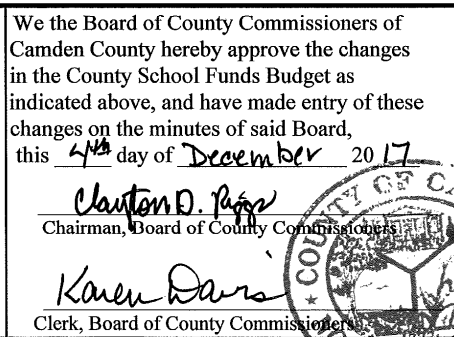 We the Board of County Commissioners of
Camden County hereby approve the changes
in the County School Funds Budget as
indicated above, and have made entry of these
changes on the minutes of said Board,
this 4th day of December 20 17
Clayton D. Riggs
Chairman, Board of County Commissioners
Karen Davis
Clerk, Board of County Commissioners
COUNTY OF CA